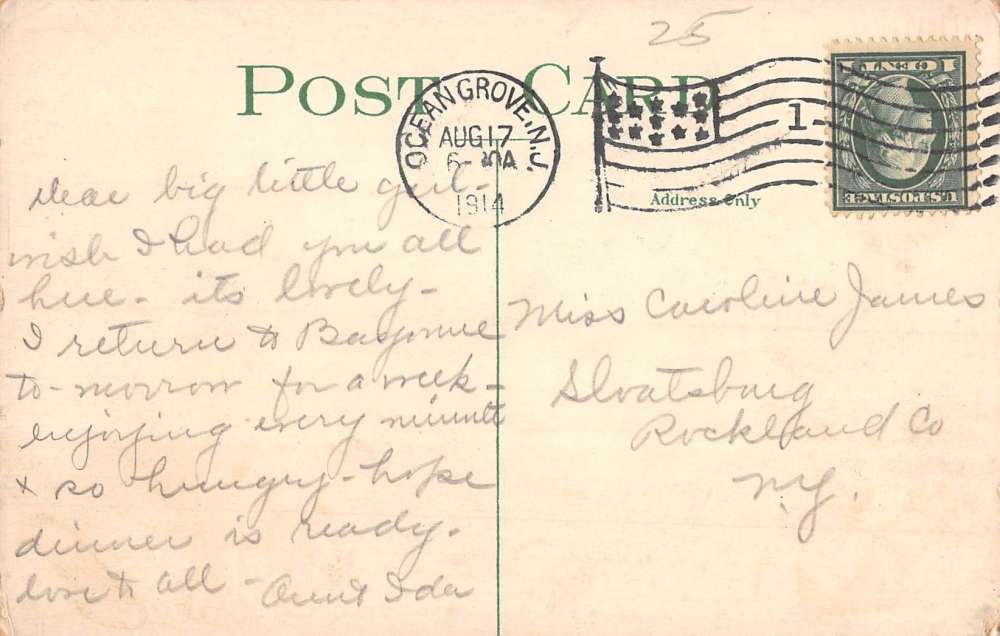 25
POST CARD
OCEAN GROVE, N.J.
AUG 17
6-30A
1914
1
1 CENT 1
U.S. POSTAGE
Address Only
Dear big little girl-
wish I had you all
here- its lovely-
I return to Bayonne
to-morrow for a week-
enjoying every minute
+ so hungry- hope
dinner is ready.
love to all - Aunt Ida
Miss Caroline James
Sloatsburg
Rockland Co
N.Y.